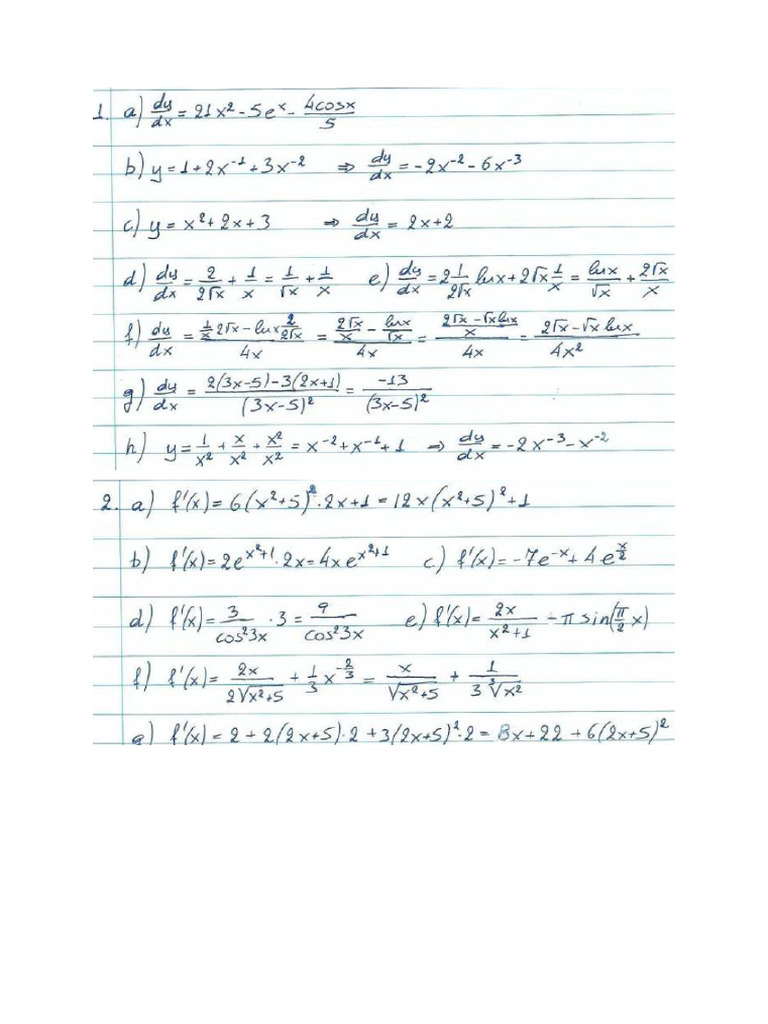 1. a) dy/dx = 21x² - 5eˣ - 4cosx/5
b) y = 1 + 2x⁻¹ + 3x⁻² ⇒ dy/dx = -2x⁻² - 6x⁻³
c) y = x² + 2x + 3 ⇒ dy/dx = 2x + 2
d) dy/dx = 2/(2√x) + 1/x = 1/√x + 1/x e) dy/dx = 2 1/(2√x) lnx + 2√x 1/x = lnx/√x + 2√x/x
f) dy/dx = (1/x 2√x - lnx 2/(2√x))/(4x) = (2√x/x - lnx/√x)/(4x) = ((2√x - √x lnx)/x)/(4x) = (2√x - √x lnx)/(4x²)
g) dy/dx = (2(3x-5) - 3(2x+1))/(3x-5)² = -13/(3x-5)²
h) y = 1/x² + x/x² + x²/x² = x⁻² + x⁻¹ + 1 ⇒ dy/dx = -2x⁻³ - x⁻²
2. a) f'(x) = 6(x²+5)² · 2x + 1 = 12x(x²+5)² + 1
b) f'(x) = 2e^(x²+1) · 2x = 4xe^(x²+1) c) f'(x) = -7e⁻ˣ + 4e^(x/2)
d) f'(x) = 3/(cos²3x) · 3 = 9/(cos²3x) e) f'(x) = 2x/(x²+1) - π sin(π/2 x)
f) f'(x) = 2x/(2√(x²+5)) + 1/3 x^(-2/3) = x/√(x²+5) + 1/(3∛x²)
g) f'(x) = 2 + 2(2x+5)·2 + 3(2x+5)²·2 = 8x + 22 + 6(2x+5)²